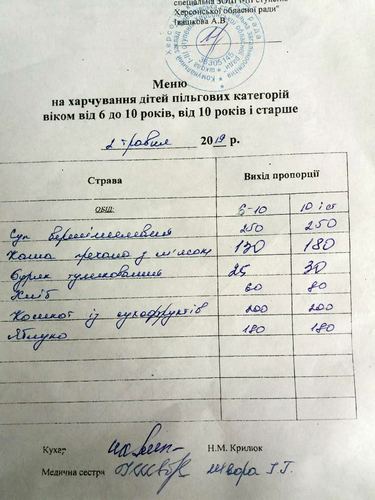 спеціальна ЗОШ І-ІІ ступенів
Херсонської обласної ради"
Івашкова А.В.
36305145
Меню
на харчування дітей пільгових категорій
віком від 6 до 10 років, від 10 років і старше
2 травня 2019 р.
Страва Вихід пропорції
ОБІД: 6-10 10 і ст
Суп вермішелевий 250 250
Каша гречана з м'ясом 130 180
Буряк тушкований 25 30
Хліб 60 80
Компот із сухофруктів 200 200
Яблуко 180 180
Кухар Н.М. Крилюк
Медична сестра